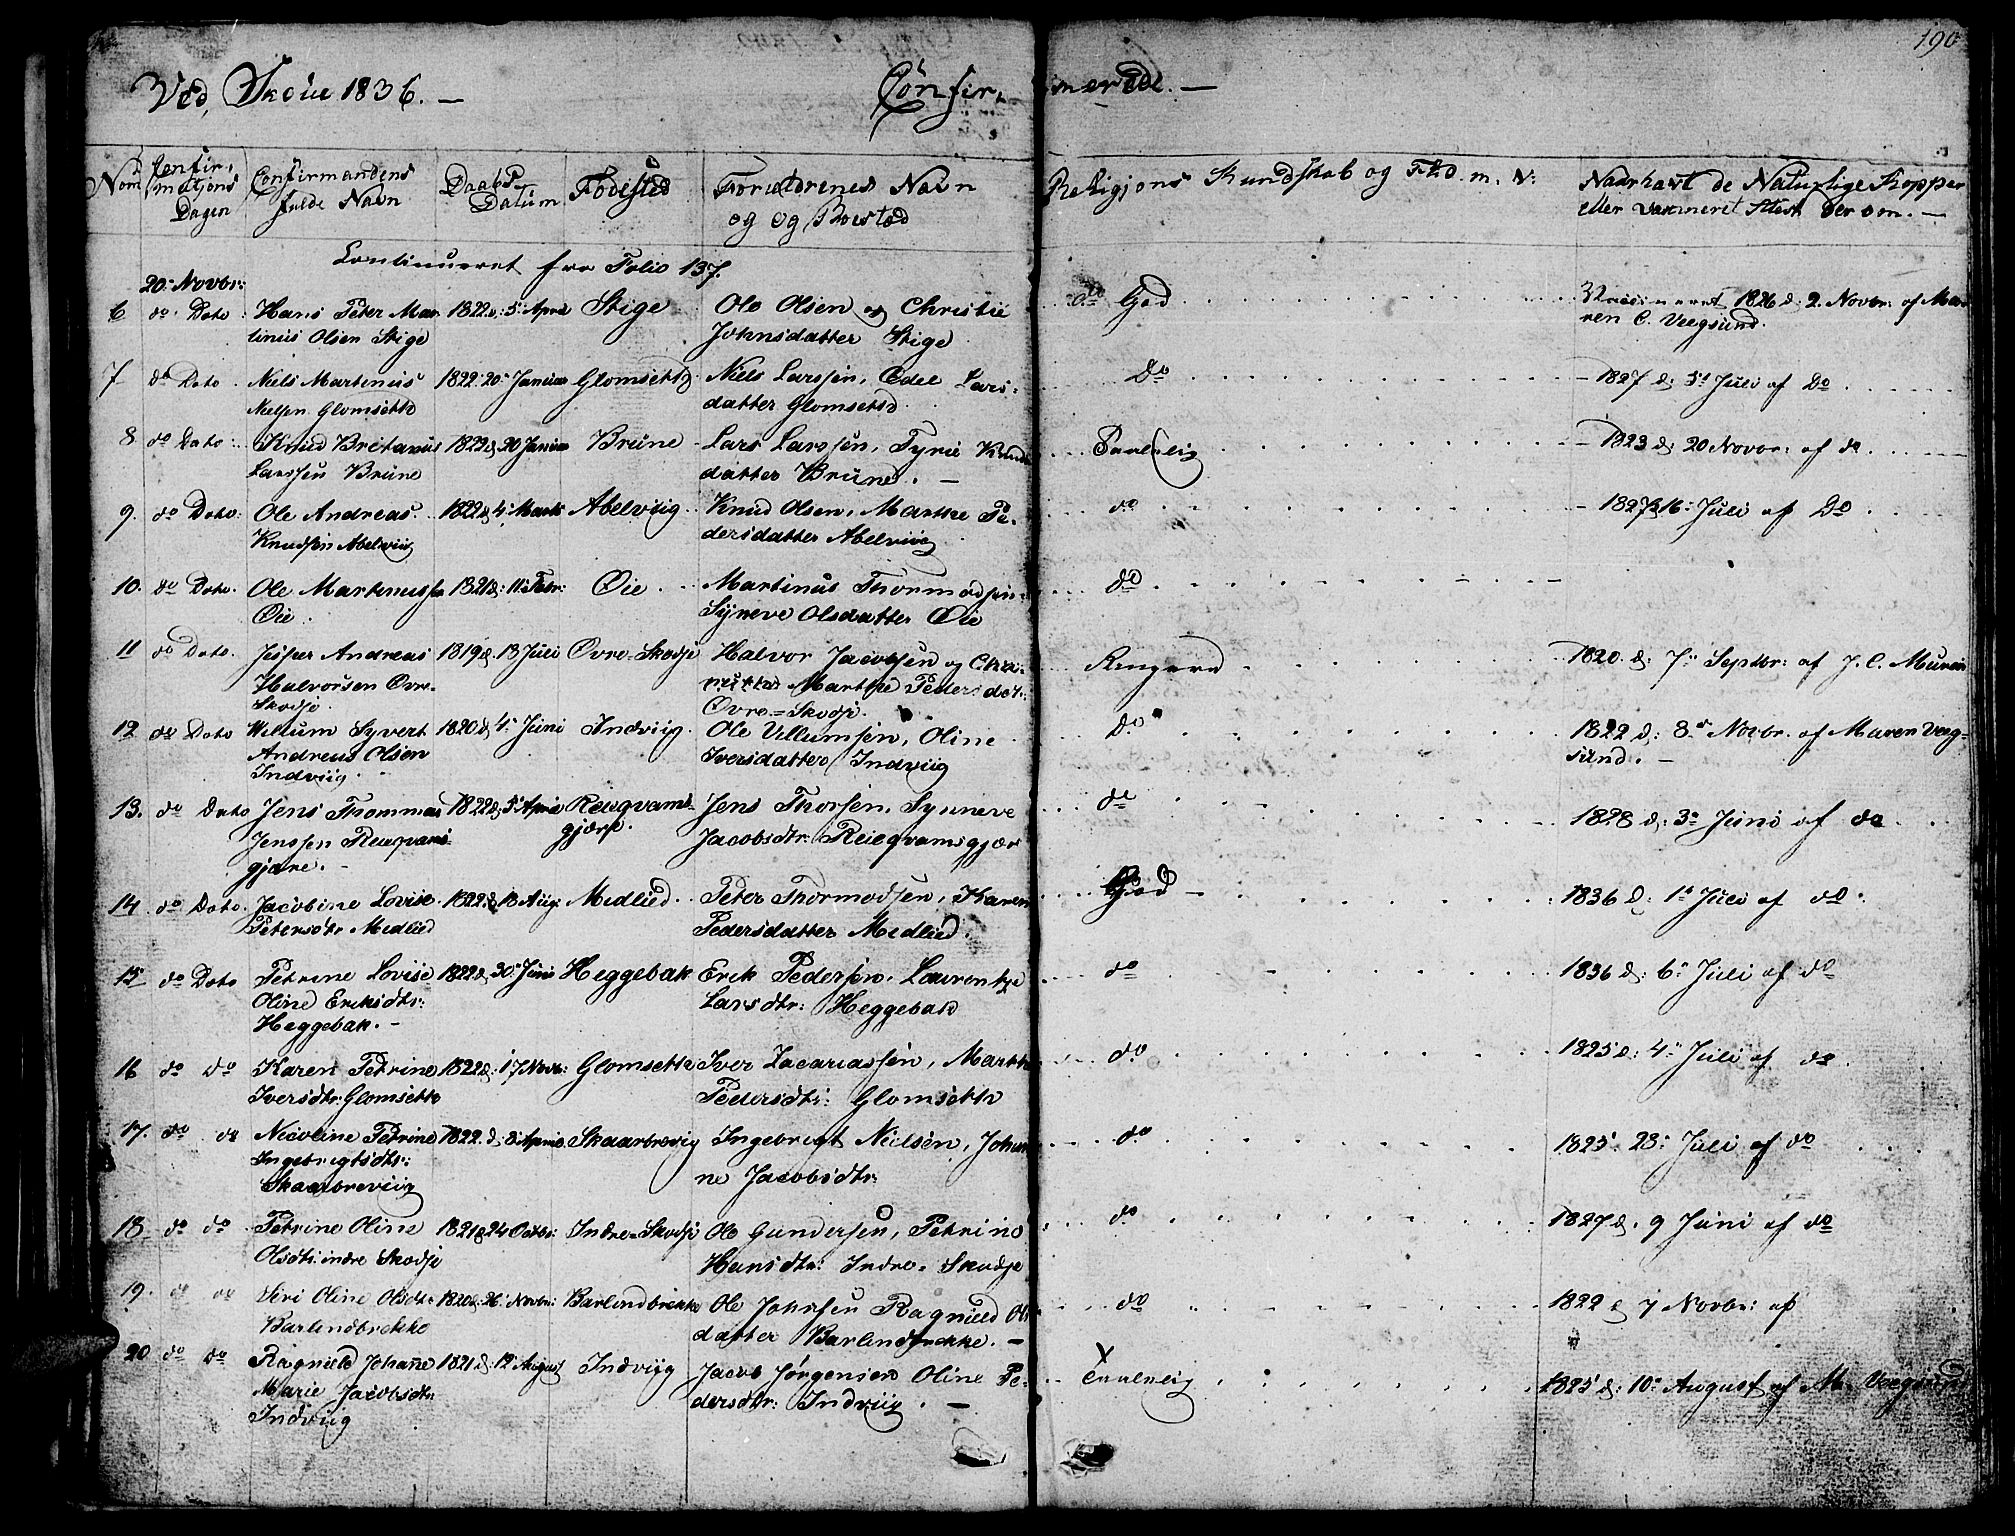 190
Ved Skoie 1836. — Confirmerede. —
Nom Confirmationsdagen Confirmandens fulde Navn Daabs Datum Fødested Forældrenes Navn og og Boested Religions Kundskab og Fl: d. m. V: Naar havt de Naturlige Kopper eller vaccineret Attest derom. —
Continueret fra Folio 137.
20: Novbr:
6 do Dato Hans Peter Mar 1822 d: 5 April Stige Ole Olsen og Christie do God Vaccineret 1826 d: 2 Novbr: af Ma
tinus Olsen Stige Johnsdatter Stige ren C. Veegsund.
7 do Dato Niels Martinus 1822 20 Januar Glomsette Niels Larsen, Edel Lars- Do 1827 d: 5 Juli af Do
Nielsen Glomsette datter Glomsette
8 do Dato Knud Bretanus 1822 d 20 Januar Brune Lars Larssen, Tyrie Knuds Taalelig 1823 d: 20 Novbr: af do
Larssen Brune datter Brune. —
9. do Dato Ole Andreas 1822 d 4 Marts Abelviig Knud Olsen, Marthe Pe- do 1827 16 Juli af Do
Knudsen Abelviig dersdatter Abelviig
10. do Dato. Ole Martinussen 1821 d: 11 Febr: Øie Martinus Thormodsen do
Øie Syneve Olsdatter Øie
11 do Dato. Jesper Andreas 1819 d. 13 Juli Øvre-Skodje Halvor Jacobsen og 1820. d: 7 Septbr: af J. C.
Halvorsen Øvre- Marthe Peders dat:
Skodje. Øvre-Skodje.
12 do Dato Villum Syvert 1820 d 4 Juni Indviig Ole Villumsen, Oline Do 1822 d: 8 Novbr. af Maren Veeg-
Andreas Olsen Iversdatter Indviig sund. —
Indviig.
13. do Dato Jens Thommas 1822 d 5 April gjære. Jens Thorsen, Synneve do 1828 d: 3 Juni af do
Jenssen Jacobsdtr:
gjære. —
14 do Dato. Jacobine Lovise 1822 d 18 Aug: Medlied Peter Thormodsen, Karen God — 1836 d: 1 Juli af do
Petersdtr Medlied Pedersdatter Medlied.
15 do Dato Petrine Lovise 1822 d 30 Juni Heggebak Erik Pedersen, Laurentze do 1836 d: 6 Juli af do
Oline Eriksdtr: Larsdtr: Heggebak
Heggebak. —
16 do do Karen Petrine 1822 d: 17 Novb: Glomsette Iver Zacariassen, Marthe do 1825 d: 4 Juli af do
Iversdtr: Glomsette Pedersdtr: Glomsette
17. do do Nicoline Petrine 1822. d 8 April Skaarbrevig Ingebrigt Nielsen, Johan do 1825 23 Juli af do
Ingebrigtsdtr: ne Jacobsdtr:
Skaarbreviig
18 do do Petrine Oline 1821 d 24 Octbr: Indre-Skodje Ole Gundersen, Petrine do 1827 d. 9 Juni af do
Olsdtr: indre Skodje Hansdtr: Indre-Skodje
19. do do Siri Oline Olsdtr 1820 d: 26 Novbr: Barlindbrekke Ole Johnsen Ragnild Ols do 1822 d 7 Novbr: af
Barlindbrekke datter Barlindbrekke. —
20 do do Ragnild Johanne 1821 d: 12 August Indviig Jacob Jørgensen Oline Pe- Taalelig 1825 d: 10 August af M. Veegsund
Marie Jacobsdtr dersdtr: Indviig. —
Indviig